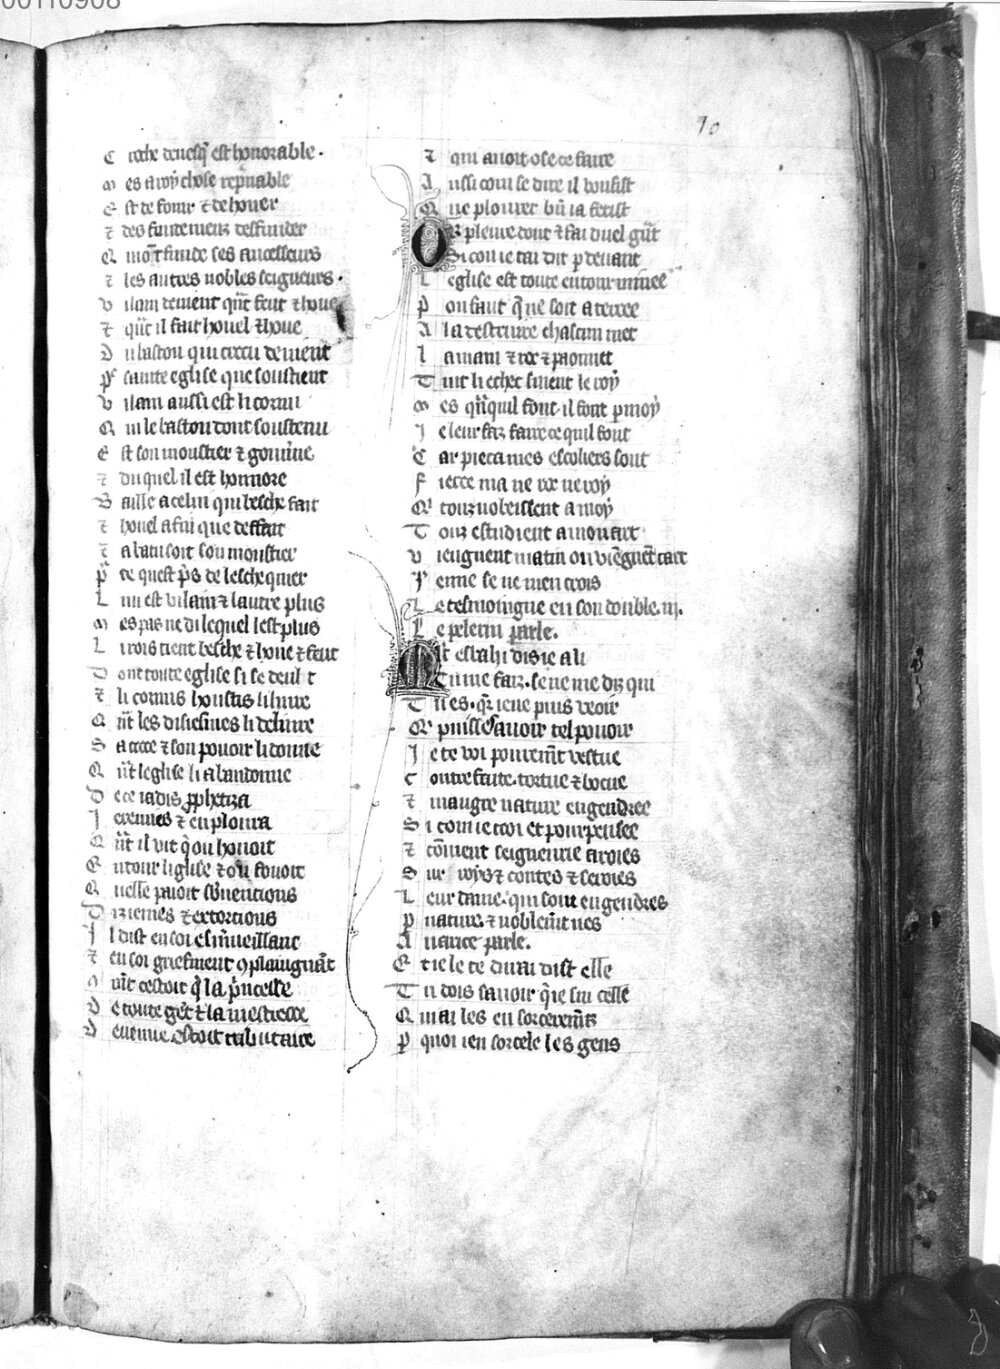 00110908
70
C roche d'euesq̄ est honorable .
M es a roy chose rep̄nable
E st de fouir ⁊ de houer
⁊ des fondemens deffonder
Q mo't funde ses ancesseurs
⁊ les autres nobles seigneurs .
V ilain deuient qn̄t feut ⁊ houe
⁊ qn̄t il fait houel ⁊ houe
D u baston qui croce deuient
P̄ sainte eglise que soustient
V ilain aussi est li cornu
Q ui le baston dont soustenu
E st son moustier ⁊ gouu'ne
⁊ du quel il est honnore
B aille a celui qui besche fait
⁊ houel a fui que deffait
⁊ abatu soit son moustier
P̄ ce quest p̄s de leschequier
L un est vilain ⁊ lautre plus
M es pas ne di lequel lest plus
L i rois tient besche ⁊ houe ⁊ feut
D ont toute eglise si se deult
⁊ li cornus houstis li liure
Q n̄t les disiesmes li deliure
S a croce ⁊ son pouoir li donne
Q n̄t leglise li abandonne
D e ce iadis ꝓphetiza
J eremies ⁊ en ploura
Q n̄t il vit q̄ on houoit
E ntour liglise ⁊ ou fouoit
Q uelle paioit subuencions
D iziemes ⁊ extorcions
J l dist en soi esm̄ueillant
⁊ en soi griefment ꝯplaingnāt
M lt' cestoit q̄ la p̄ncesse
D e toute ge't ⁊ la mestresse
D euenue estoit tributaire
⁊ qui auoit ose ce faire
A ussi com se dire il vousist
Q ue plourer bn̄ ia feist
OR pleure dont ⁊ fai duel gn̄t
Si com ie tai dit p deuant
L eglise est toute entour minee
P ou faut q̄ ne soit a terre
A la destruire chascun met
L a main ⁊ roc ⁊ paonnet
T uit li echec suient le roy
M es qn̄quil font il font p moy
J e leur faz faire ce quil font
C ar pieca mes escoliers sont
F ierce ma ne roc ne roy
Q' touz nobeissent a moy
T ouz estudient a mon art
V ieugnent matin ou viēgnent tart
S enne se ne men crois
L e tesmoingne en son double .iij.
L e pelerin parle .
MLt esbahi dis ie a li
Tu me faiz . se ne me diz qui
T u es . q̄r ie ne puis veoir
Q' puisses auoir tel pouoir
J e te voi pourem̄t vestue
C ontrefaite . tortue ⁊ bocue
⁊ maugre nature engendree
S i com ie croi et pourpensee
⁊ cōment seigneurie aroies
S ur roys ⁊ contes ⁊ seroies
L eur dame . qui sont engendres
P nature ⁊ noblem̄t nes
A uarice parle .
E t ie le te dirai dist elle
T u dois sauoir q̄ ie sui celle
Q mai les en sorcerem̄s
P quoi ien sorcele les gens